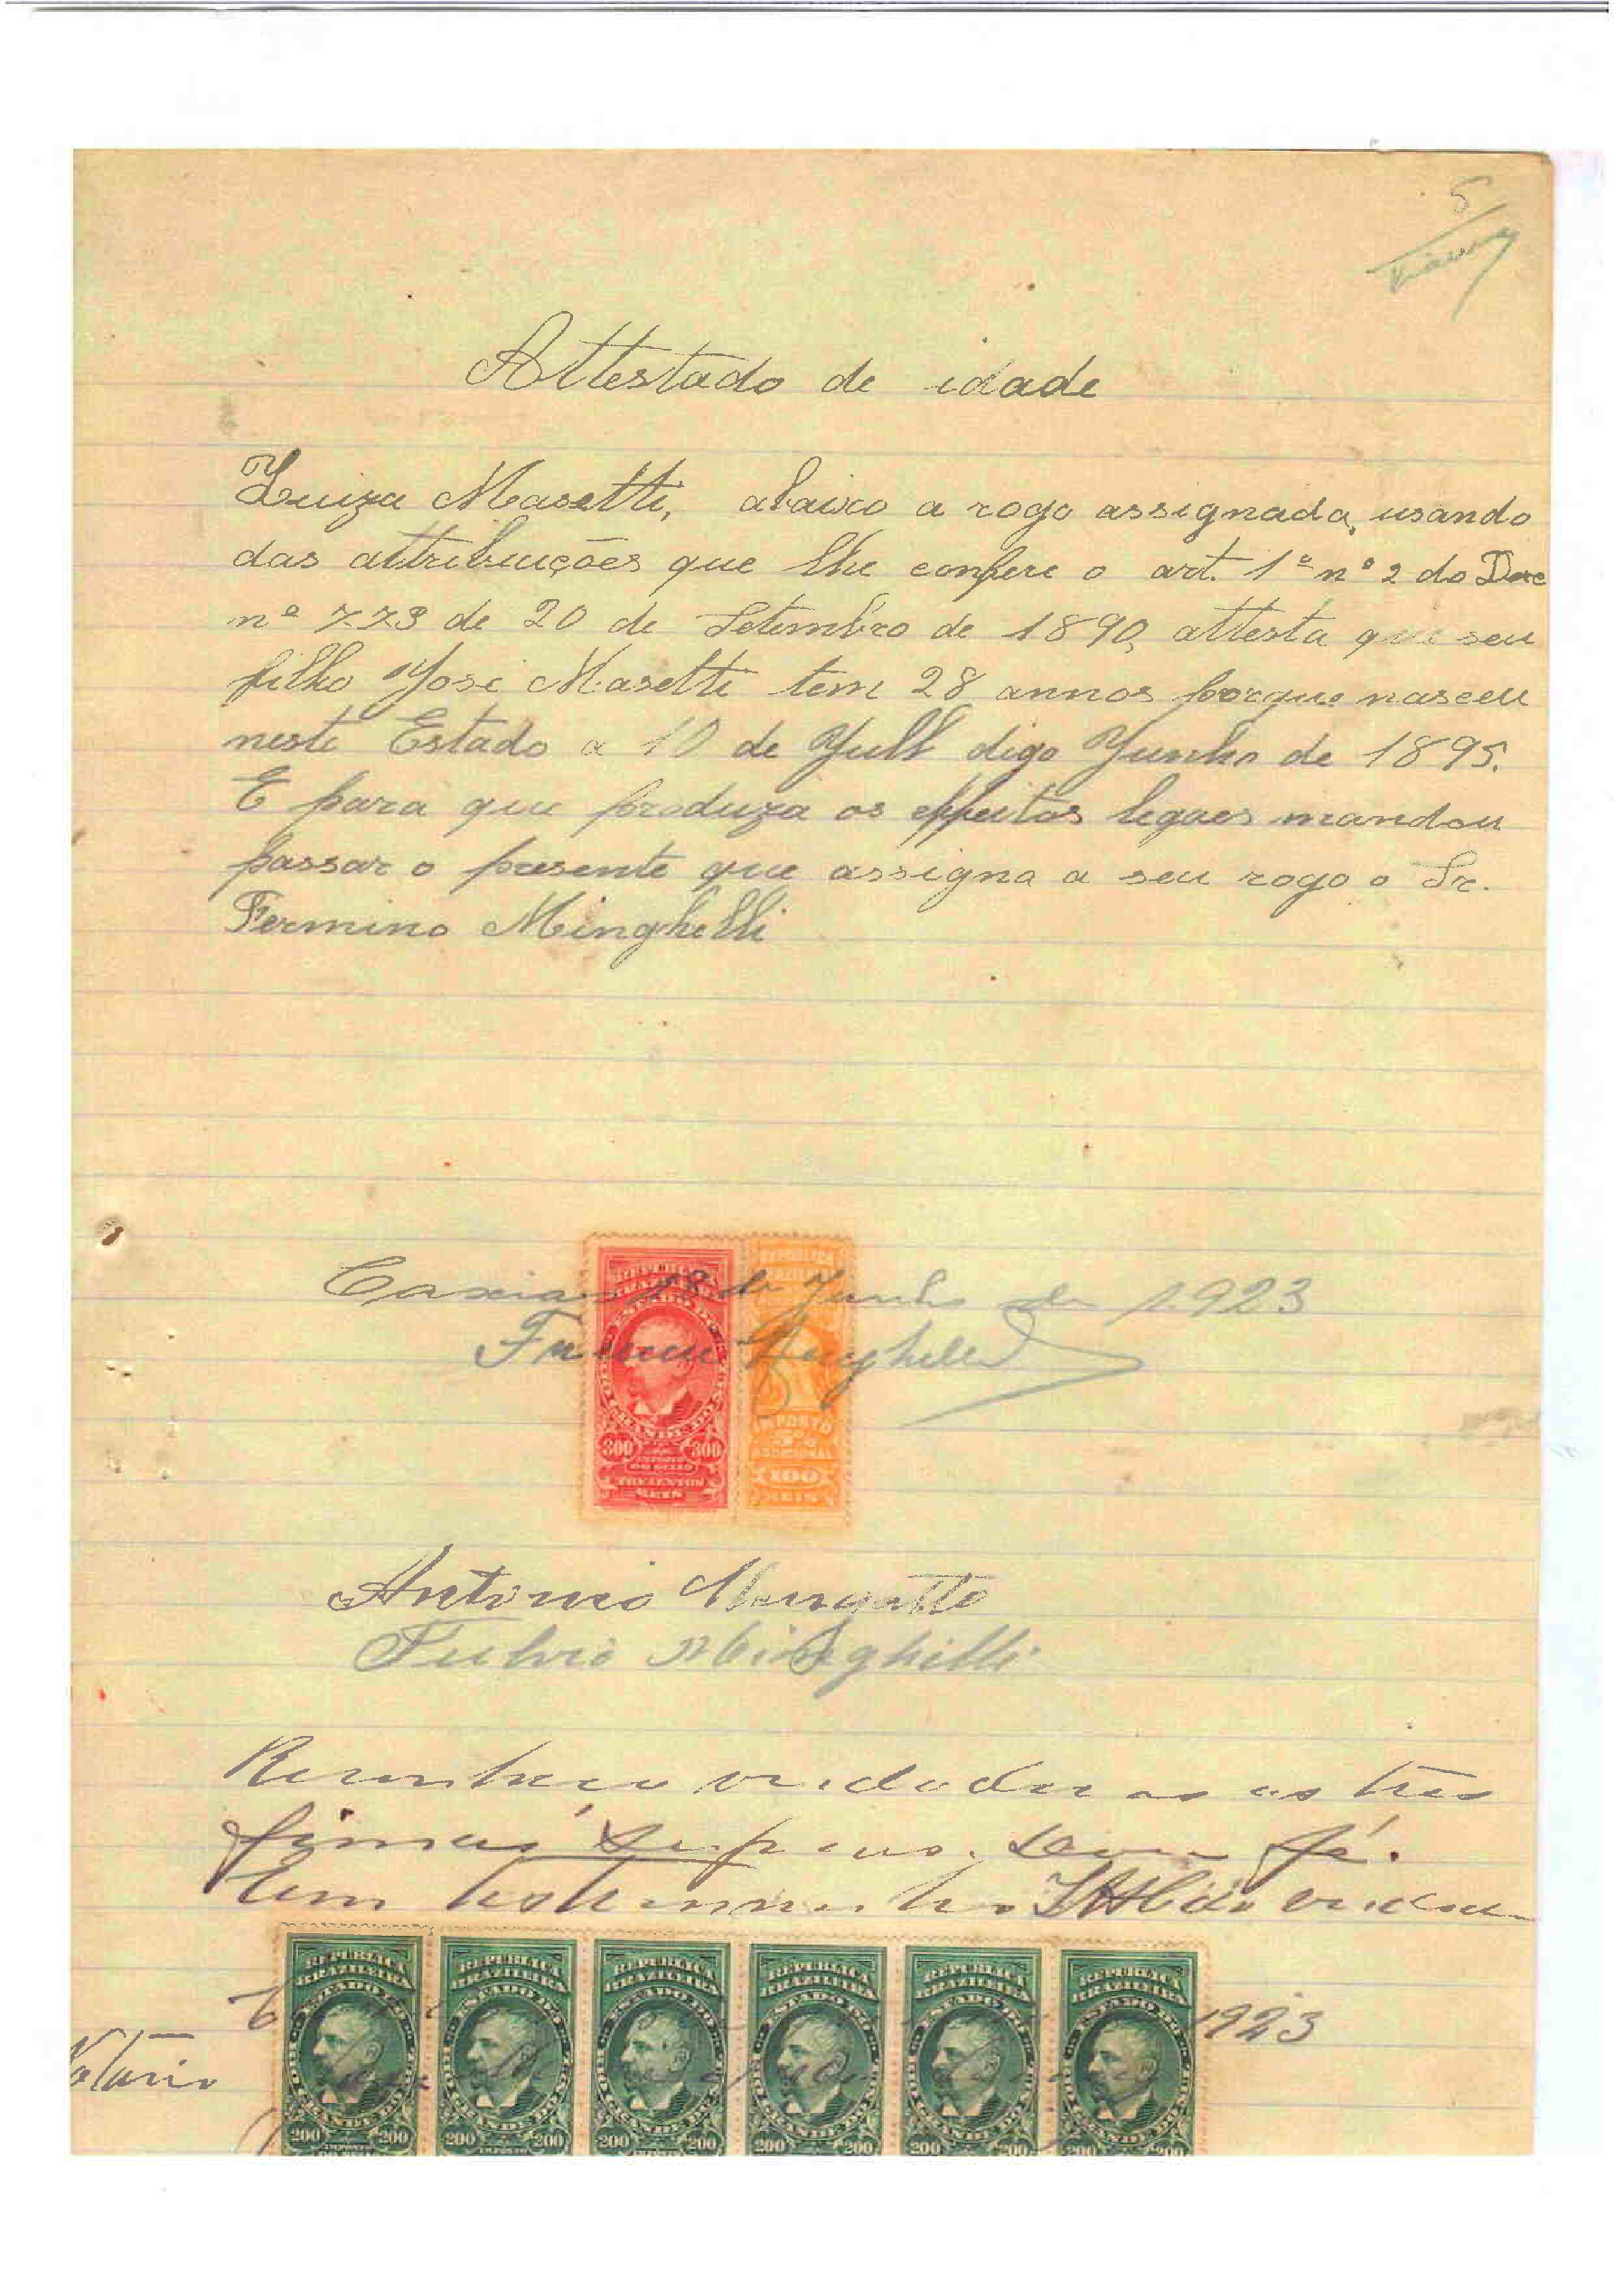 5
Attestado de idade
Luiza Masetti, abaixo a rogo assignada, usando
das attribuições que lhe confere o art. 1º nº 2 do Dec
nº 773 de 20 de Setembro de 1890, attesta que seu
filho José Masetti tem 28 annos porque nasceu
neste Estado a 10 de Julh digo Junho de 1895.
E para que produza os effeitos legaes mandou
passar o presente que assigna a seu rogo o Sr.
Fermino Minghelli
REPUBLICA
REPUBLICA
Caxias 18 de Junho de 1923
Minghelli
300 300
IMPOSTO
DO SELLO
TREZENTOS
REIS
IMPOSTO
ADDICIONAL
100
REIS
Antonio
Fulvio Minghelli
Reconheço verdadeiras as tres
firmas supras. Dou fé.
Em testemunho da verdade
REPUBLICA BRAZILEIRA REPUBLICA BRAZILEIRA REPUBLICA BRAZILEIRA REPUBLICA BRAZILEIRA REPUBLICA BRAZILEIRA REPUBLICA BRAZILEIRA
1923
Notario
200 200 200 200 200 200 200 200 200 200 200 200